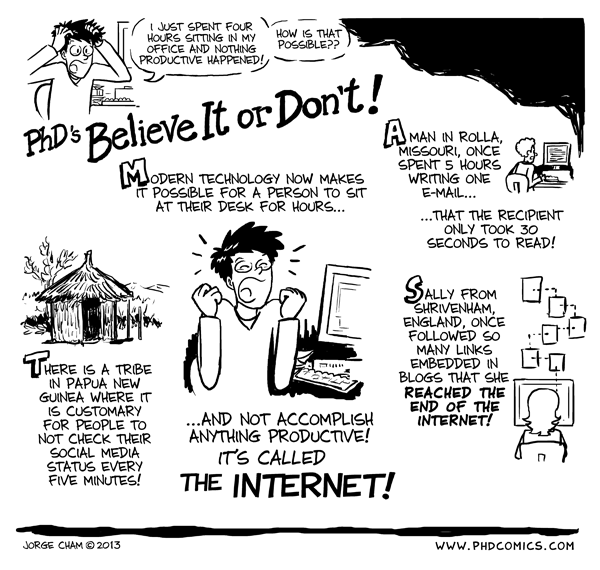 I JUST SPENT FOUR
HOURS SITTING IN MY
OFFICE AND NOTHING
PRODUCTIVE HAPPENED!
HOW IS THAT
POSSIBLE??
PhD's Believe It or Don't!
MODERN TECHNOLOGY NOW MAKES
IT POSSIBLE FOR A PERSON TO SIT
AT THEIR DESK FOR HOURS...
...AND NOT ACCOMPLISH
ANYTHING PRODUCTIVE!
IT'S CALLED
THE INTERNET!
A MAN IN ROLLA,
MISSOURI, ONCE
SPENT 5 HOURS
WRITING ONE
E-MAIL...
...THAT THE RECIPIENT
ONLY TOOK 30
SECONDS TO READ!
THERE IS A TRIBE
IN PAPUA NEW
GUINEA WHERE IT
IS CUSTOMARY
FOR PEOPLE TO
NOT CHECK THEIR
SOCIAL MEDIA
STATUS EVERY
FIVE MINUTES!
SALLY FROM
SHRIVENHAM,
ENGLAND, ONCE
FOLLOWED SO
MANY LINKS
EMBEDDED IN
BLOGS THAT SHE
REACHED THE
END OF THE
INTERNET!
JORGE CHAM © 2013
WWW.PHDCOMICS.COM